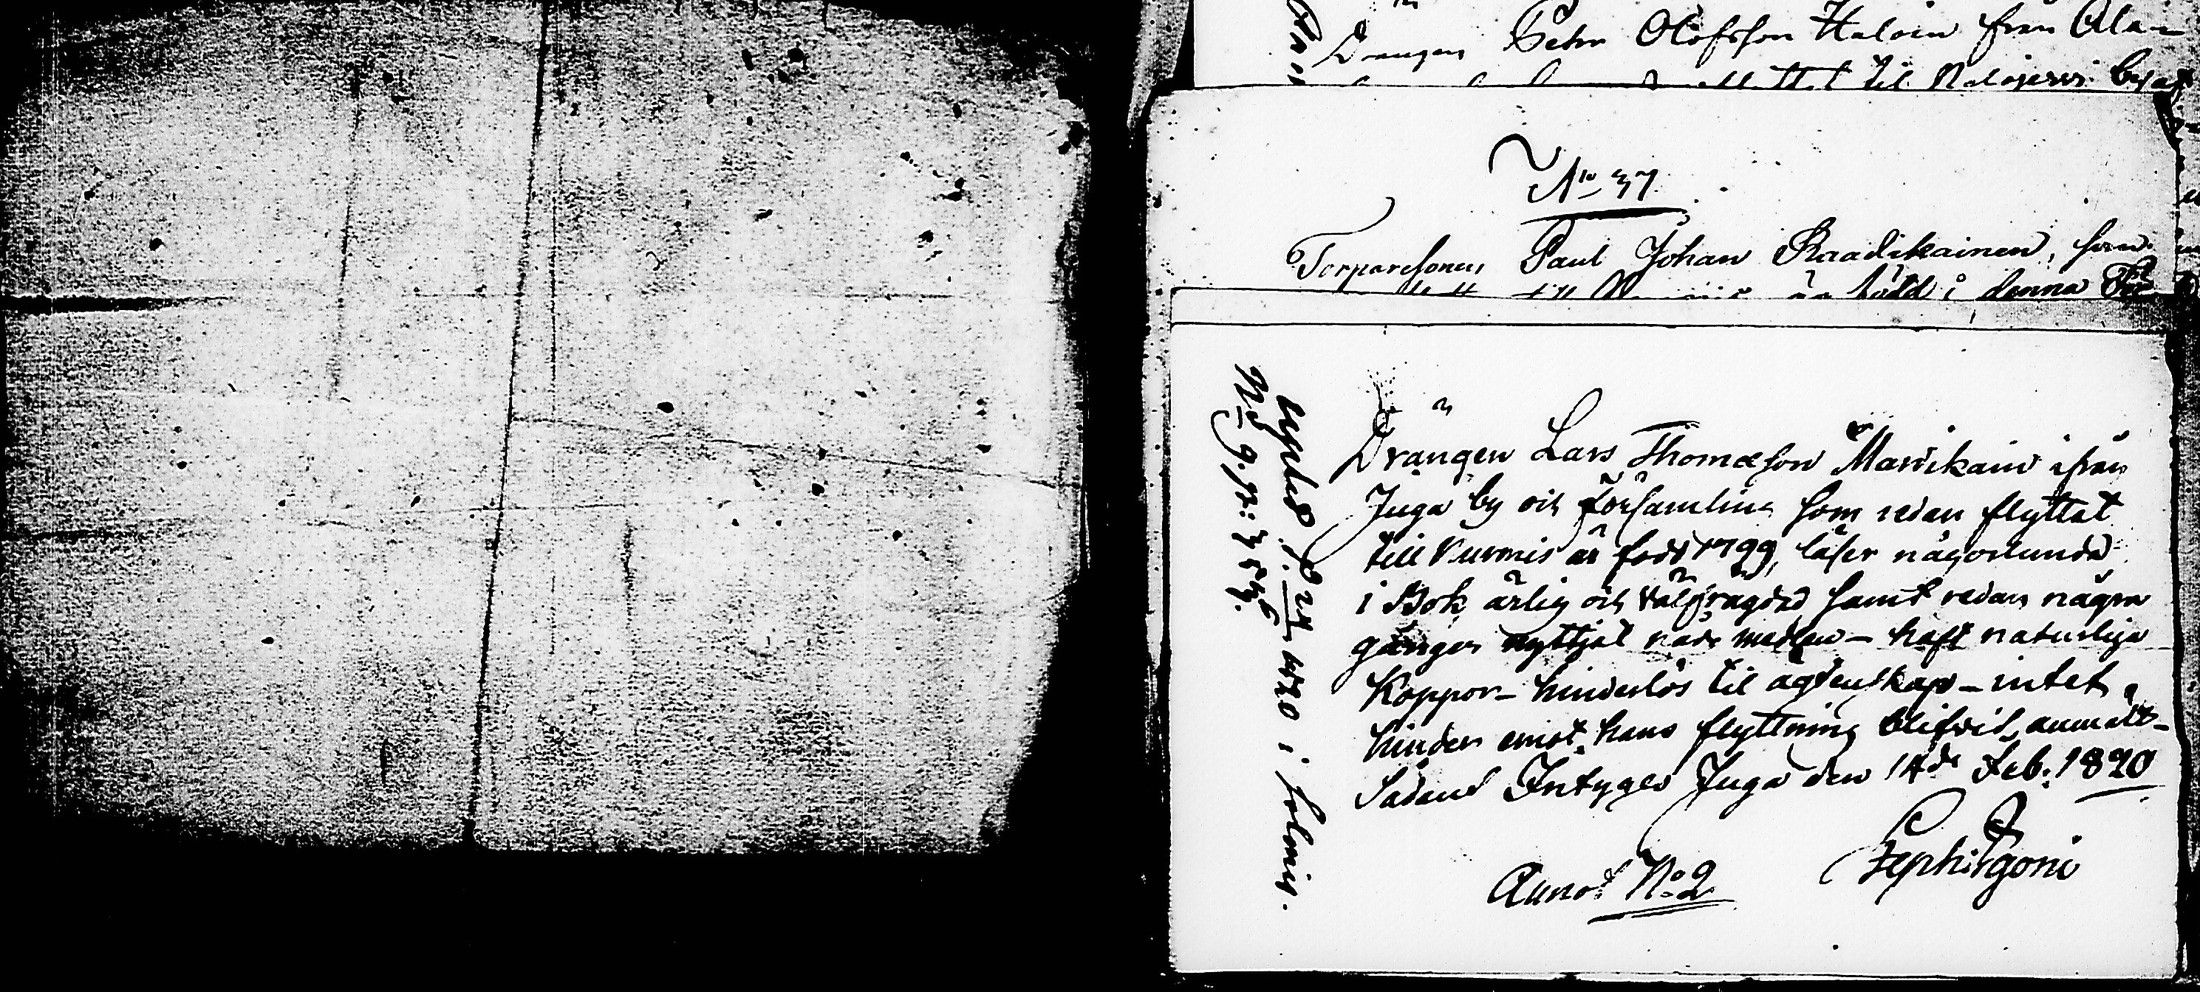 Drängen Petter Olofsson Haloin från Ala=
till Malojerwi by
No 37
Torparesonen Paul Johan Raadikainen, som
är född i denna För
Drängen Lars Thomasson Marikain ifrån
Juga by och församling som redan flyttat
till Nurmis är född 1799, läser någorlunda
i Bok ärlig och välfrägdad samt redan några
gånger nyttjat nåde medlen – haft naturliga
Koppor – hinderlös til ägtenskap – intet
hinder emot hans flyttning blifvit anmält –
Sådant Intygar Juga den 14de Feb. 1820
Annot No 2
No 9. p: 757.
1820 i